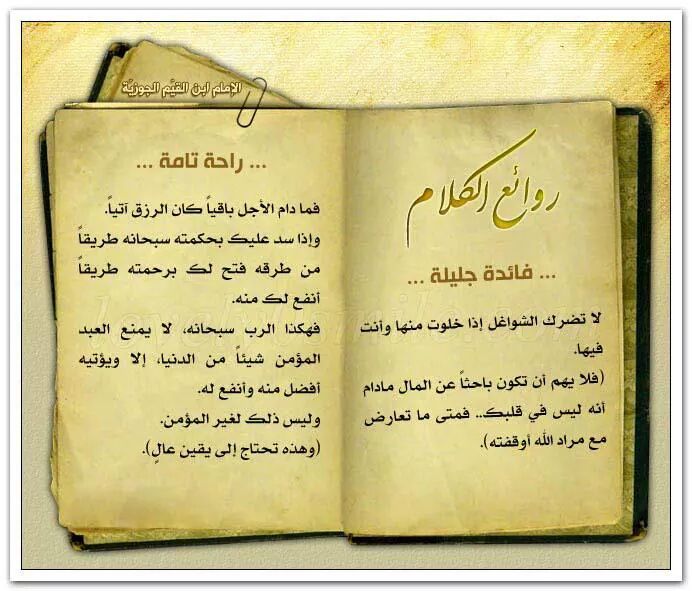 الإمام ابن القيّم الجوزيّة
روائع الكلام
... فائدة جليلة ...
لا تضرك الشواغل إذا خلوت منها وأنت
فيها.
(فلا يهم أن تكون باحثاً عن المال مادام
أنه ليس في قلبك.. فمتى ما تعارض
مع مراد الله أوقفته).
... راحة تامة ...
فما دام الأجل باقياً كان الرزق آتياً.
وإذا سد عليك بحكمته سبحانه طريقاً
من طرقه فتح لك برحمته طريقاً
أنفع لك منه.
فهكذا الرب سبحانه، لا يمنع العبد
المؤمن شيئاً من الدنيا، إلا ويؤتيه
أفضل منه وأنفع له.
وليس ذلك لغير المؤمن.
(وهذه تحتاج إلى يقين عالٍ).